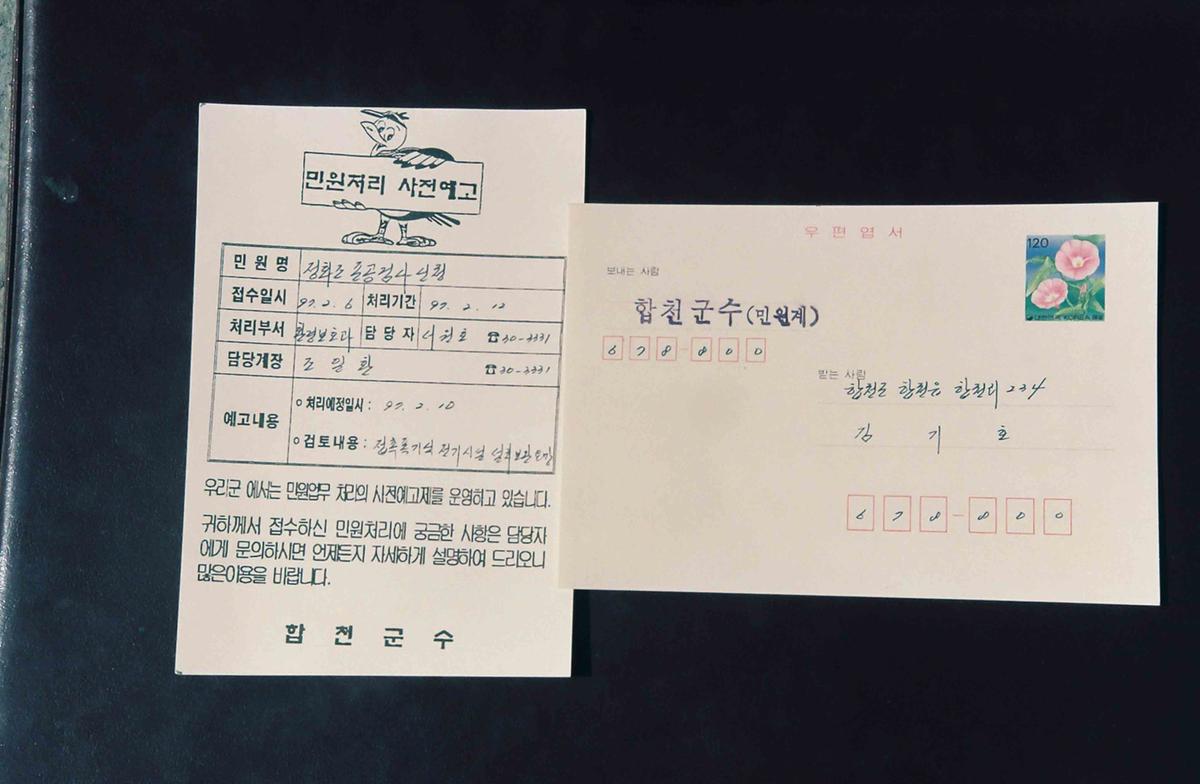 민원처리 사전예고
민원명 정화조 준공검사 신청
접수일시 97. 2. 6 처리기간 97. 2. 12
처리부서 환경보호과 담당자 서원호 ☎30-3331
담당계장 조일환 ☎30-3331
예고내용
○ 처리예정일시 : 97. 2. 10
○ 검토내용 : 접촉폭기식 전기시설
우리군 에서는 민원업무 처리의 사전예고제를 운영하고 있습니다.
귀하께서 접수하신 민원처리에 궁금한 사항은 담당자
에게 문의하시면 언제든지 자세하게 설명하여 드리오니
많은이용을 바랍니다.
합천군수
우편엽서
120
대한민국 KOREA 우표
보내는 사람
합천군수(민원계)
678-800
받는 사람
합천군 합천읍 합천리 234
김기호
678-800